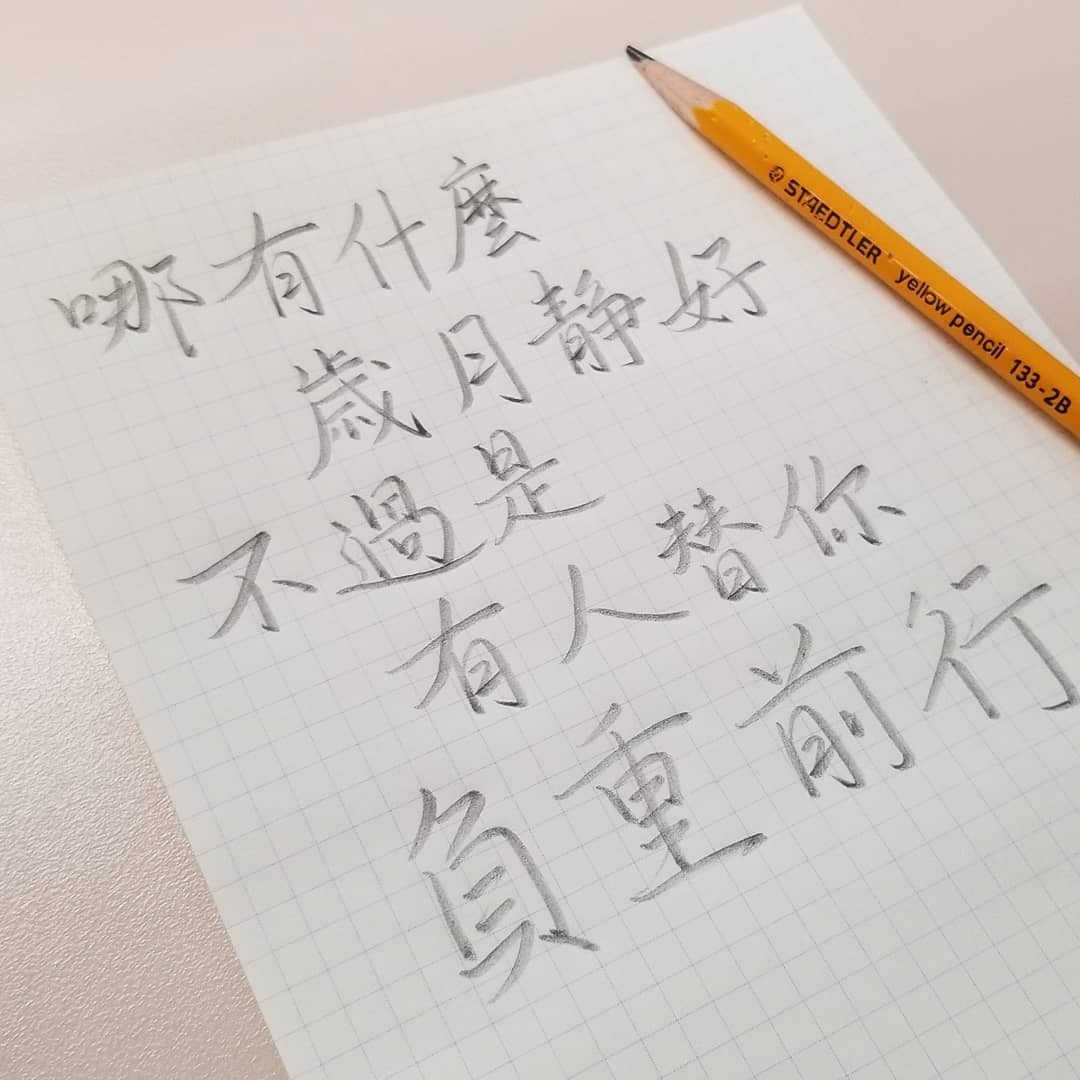 哪有什麼
歲月靜好
不過是
有人替你
負重前行
STAEDTLER yellow pencil 133-2B